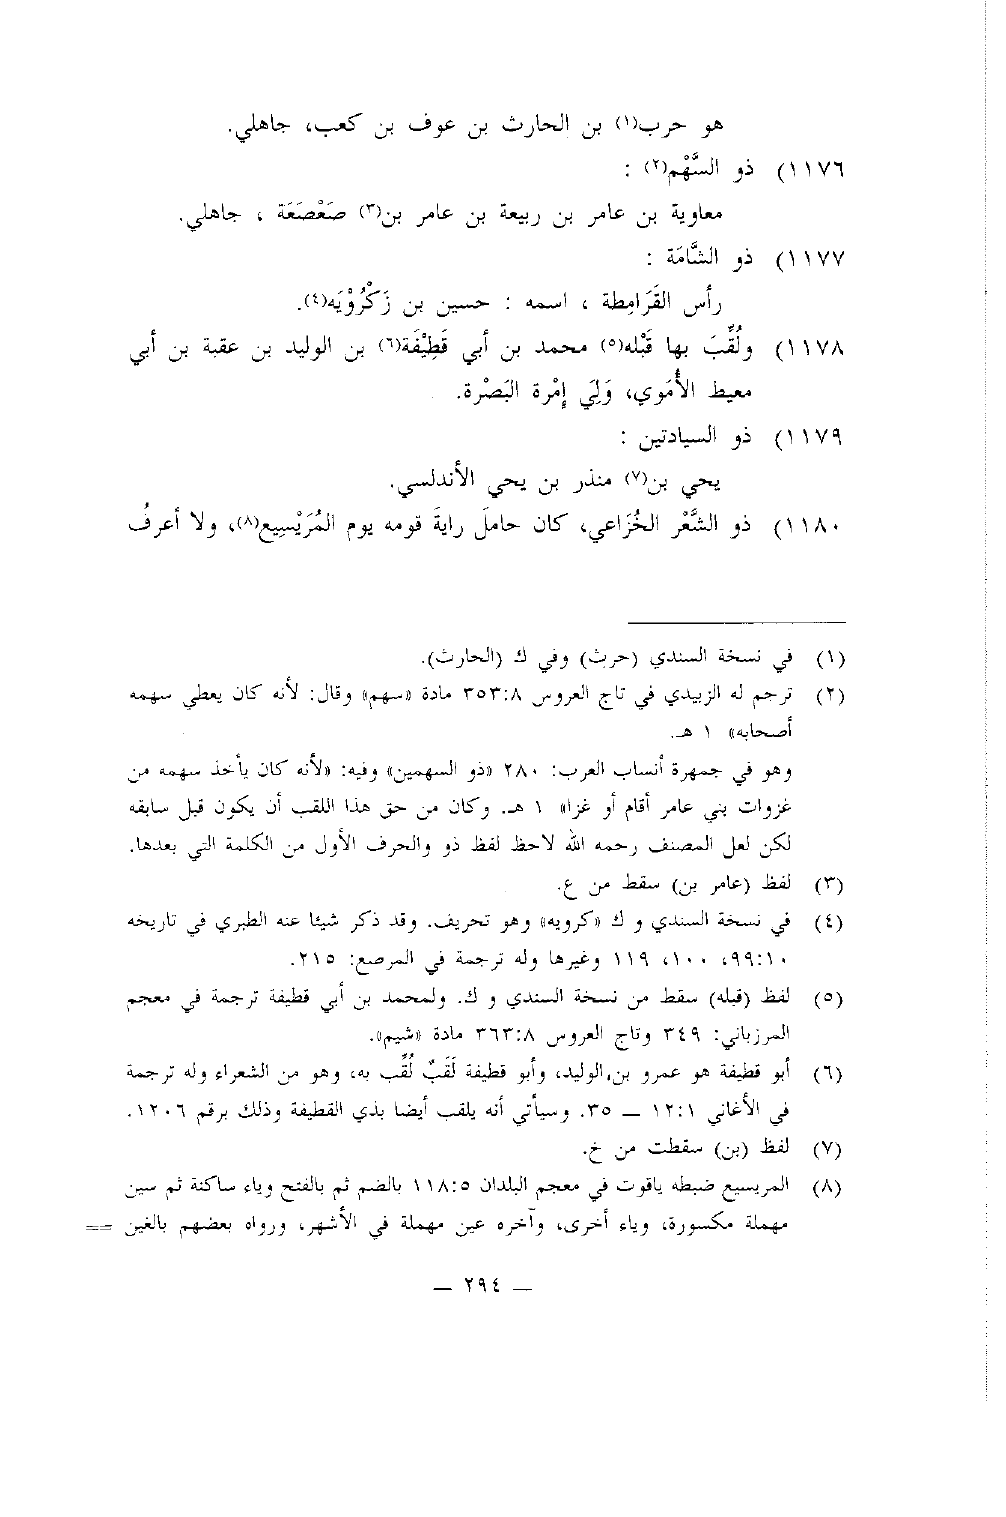 هو حرب(١) بن الحارث بن عوف بن كعب، جاهلي.
١١٧٦) ذو السَّهْم(٢) :
معاوية بن عامر بن ربيعة بن عامر بن(٣) صَعْصَعَة ، جاهلي.
١١٧٧) ذو الشَّامَة :
رأس القَرَامِطة ، اسمه : حسين بن زَكْرُوْيَه(٤).
١١٧٨) ولُقِّبَ بها قَبْله(٥) محمد بن أبي قَطِيْفَة(٦) بن الوليد بن عقبة بن أبي
معيط الأُمَوي، وَلِيَ إمْرة البَصْرة.
١١٧٩) ذو السيادتين :
يحي بن(٧) منذر بن يحي الأندلسي.
١١٨٠) ذو الشَّعْر الخُزَاعي، كان حاملَ رايةَ قومه يوم المُرَيْسِيع(٨)، ولا أعرفُ
(١) في نسخة السندي (حرث) وفي ك (الحارث).
(٢) ترجم له الزبيدي في تاج العروس ٣٥٣:٨ مادة «سهم» وقال: لأنه كان يعطي سهمه
أصحابه» ١ هـ.
وهو في جمهرة أنساب العرب: ٢٨٠ «ذو السهمين» وفيه: «لأنه كان يأخذ سهمه من
غزوات بني عامر أقام أو غزا» ١ هـ. وكان من حق هذا اللقب أن يكون قبل سابقه
لكن لعل المصنف رحمه الله لاحظ لفظ ذو والحرف الأول من الكلمة التي بعدها.
(٣) لفظ (عامر بن) سقط من ع.
(٤) في نسخة السندي و ك «كرويه» وهو تحريف. وقد ذكر شيئا عنه الطبري في تاريخه
٩٩:١٠، ١٠٠، ١١٩ وغيرها وله ترجمة في المرصع: ٢١٥.
(٥) لفظ (قبله) سقط من نسخة السندي و ك. ولمحمد بن أبي قطيفة ترجمة في معجم
المرزباني: ٣٤٩ وتاج العروس ٣٦٣:٨ مادة «شيم».
(٦) أبو قطيفة هو عمرو بن الوليد، وأبو قطيفة لَقَبٌ لُقِّب به، وهو من الشعراء وله ترجمة
في الأغاني ١٢:١ — ٣٥. وسيأتي أنه يلقب أيضا بذي القطيفة وذلك برقم ١٢٠٦.
(٧) لفظ (بن) سقطت من خ.
(٨) المريسيع ضبطه ياقوت في معجم البلدان ١١٨:٥ بالضم ثم بالفتح وياء ساكنة ثم سين
مهملة مكسورة، وياء أخرى، وآخره عين مهملة في الأشهر، ورواه بعضهم بالغين ==
— ٢٩٤ —